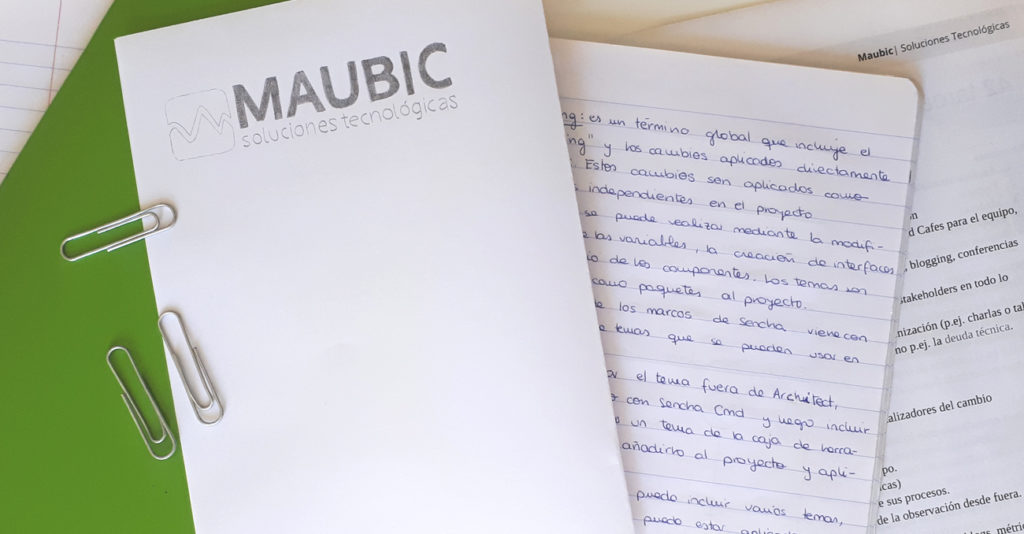 MAUBIC
soluciones tecnológicas
ng: es un término global que incluye el
ing" y los cambios aplicados directamente
. Estos cambios son aplicados como
s independientes en el proyecto
se puede realizar mediante la modifi-
e las variables, la creación de interfaces
io de los componentes. Los temas son
como paquetes al proyecto.
e los marcos de Sencha viene con
e temas que se pueden usar en
ar el tema fuera de Architect,
con Sencha Cmd y luego incluir
un tema de la caja de herra-
añadirlo al proyecto y apli-
puedo incluir varios temas,
puedo estar
Maubic| Soluciones Tecnológicas
n
d Cafes para el equipo,
, blogging, conferencias
stakeholders en todo lo
nización (p.ej. charlas o tal
no p.ej. la deuda técnica.
alizadores del cambio
po.
cas)
e sus procesos.
de la observación desde fuera.
métri